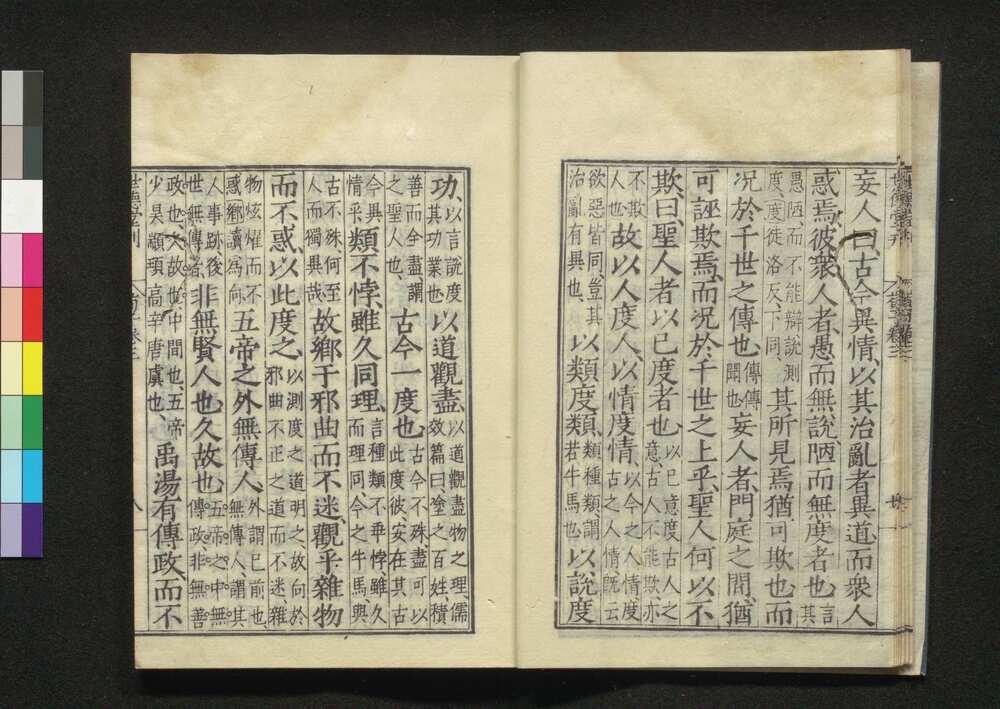 妄人曰、古今異情、以其治亂者異道、而衆人
惑焉、彼衆人者、愚而無說、陋而無度者也、言其
愚陋、而不能辯說測度、度徒洛反、下同、其所見焉、猶可欺也、而
況於千世之傳也、傳傳聞也、妄人者、門庭之間、猶
可誣欺焉、而況於千世之上乎、聖人何以不
欺、曰、聖人者以己度者也、以己意度古人之意、古人不能欺、亦
不欺人也、故以人度人、以情度情、以今之人情度古之人情、旣云
欲惡皆同、豈其治亂有異也、以類度類、類種類、謂若牛馬也、以說度
功、以言說度其功業也、以道觀盡、以道觀盡物之理、儒效篇曰、塗之百姓、積
善而全盡、謂之聖人也、古今一度也、古今不殊、盡可以此度彼、安在其古
今異情乎、類不悖、雖久同理、言種類不乖悖、雖久而理同、今之牛馬、與
古不殊、何至人而獨異哉、故鄉于邪曲而不迷、觀乎雜物
而不惑、以此度之、以測度之道明之、故向於邪曲不正之道而不迷、雜
物炫燿而不惑、鄉讀爲向、五帝之外無傳人、外謂已前也、無傳人、謂其
人事跡後世無傳者、非無賢人也、久故也、五帝之中無傳政、非無善
政也、久故也、中間也、五帝少昊顓頊高辛唐虞也、禹湯有傳政、而不
世德堂刊
八